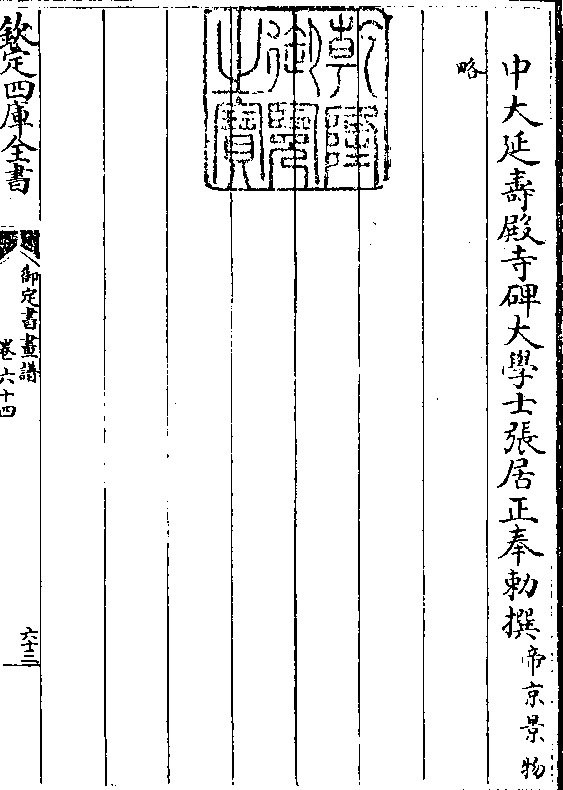 中大延壽殿寺碑大學士張居正奉勅撰帝京景物
略
乾隆御覽之寶
欽定四庫全書
御定書畫譜
卷六十四
六十三